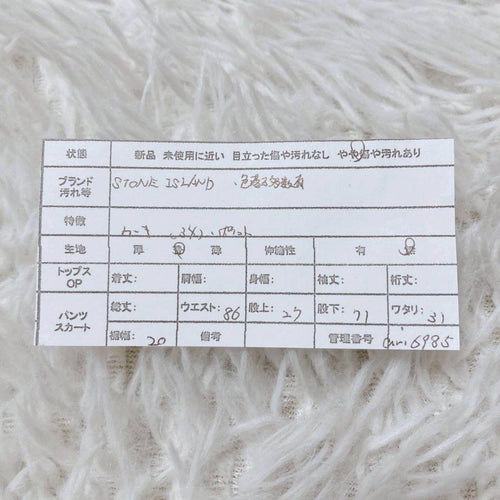 状態 新品 未使用に近い 目立った傷や汚れなし やや傷や汚れあり
ブランド 汚れ等 STONE ISLAND
特徴
生地 厚 薄 伸縮性 有
トップス OP 着丈: 肩幅: 身幅: 袖丈: 裄丈:
パンツ スカート 総丈: ウエスト: 86 股上: 27 股下: 71 ワタリ: 31
裾幅: 20 備考 管理番号 6985